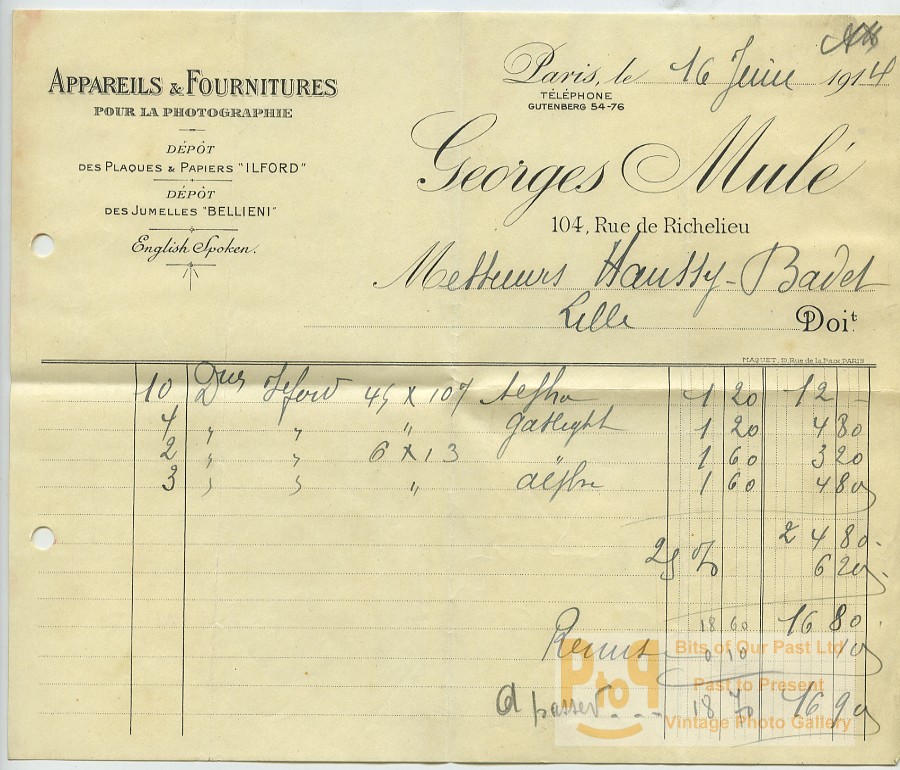 APPAREILS & FOURNITURES
POUR LA PHOTOGRAPHIE
DÉPÔT
DES PLAQUES & PAPIERS "ILFORD"
DÉPÔT
DES JUMELLES "BELLIENI"
English Spoken.
Paris, le 16 Juin 1914
TÉLÉPHONE
GUTENBERG 54-76
Georges Mulé
104, Rue de Richelieu
Messieurs Haussy-Badet
Lille Doit
MAQUET, 10, Rue de la Paix, PARIS
10 Dnes Ilford 45 x 107 alpha 1 20 12 -
4 " " " gaslight 1 20 4 80
2 " " 6 x 13 " 1 60 3 20
3 " " " alpha 1 60 4 80
24 80
25 % 6 20
18 60 16 80
0 10 10
A passer... 18 70 16 90
PtoP
Bits of Our Past Ltd
Past to Present
Vintage Photo Gallery